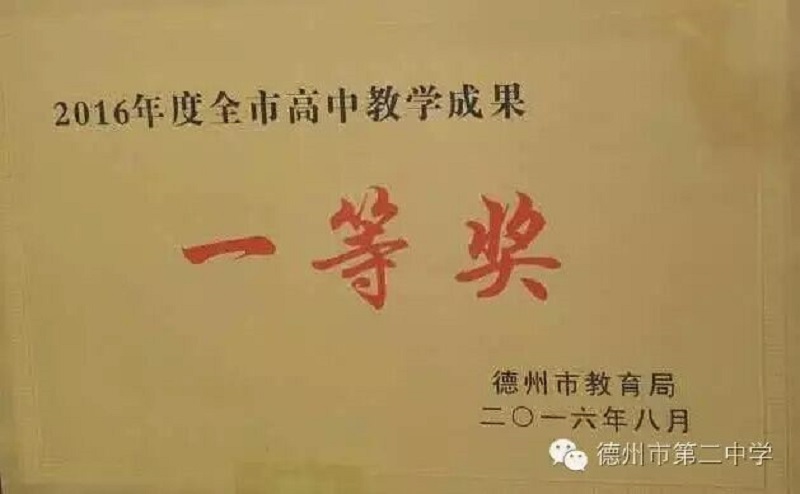 2016年度全市高中教学成果
一等奖
德州市教育局
二〇一六年八月
德州市第二中学